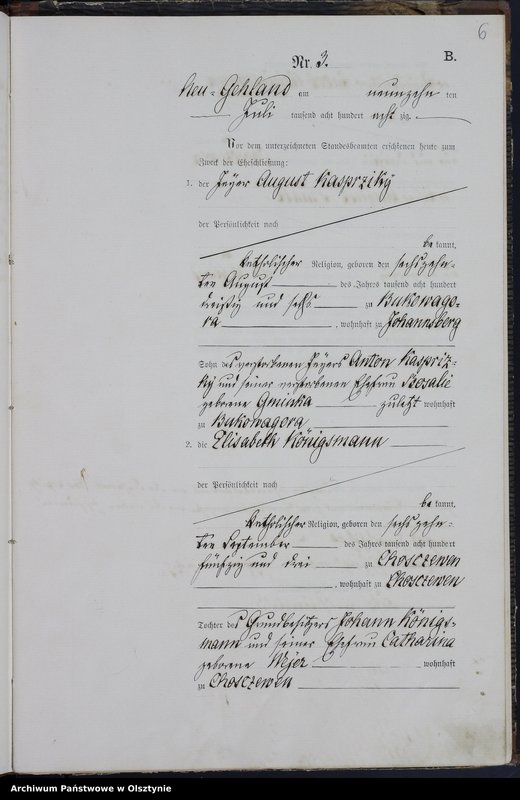 6
B.
Nr. 3.
Neu-Gehland am neunzehn ten
Juli tausend acht hundert acht zig.
Vor dem unterzeichneten Standesbeamten erschienen heute zum
Zweck der Eheschließung:
1. der August Kasprziky
der Persönlichkeit nach
be kannt,
katholischer Religion, geboren den sechszehn-
ten August des Jahres tausend acht hundert
dreißig und sechs zu Bukowago-
ra, wohnhaft zu Johannsberg
Sohn des verstorbenen Anton Kaspriz-
ky und seiner verstorbenen Ehefrau Rosalie
geborene Gminka zuletzt wohnhaft
zu Bukowagora
2. die Elisabeth Königsmann
der Persönlichkeit nach
be kannt,
katholischer Religion, geboren den sechszehn-
ten September des Jahres tausend acht hundert
fünfzig und drei zu Choszewen
, wohnhaft zu Choszewen
Tochter des Grundbesitzers Johann Königs-
mann und seiner Ehefrau Catharina
geborene wohnhaft
zu Choszewen
Archiwum Państwowe w Olsztynie